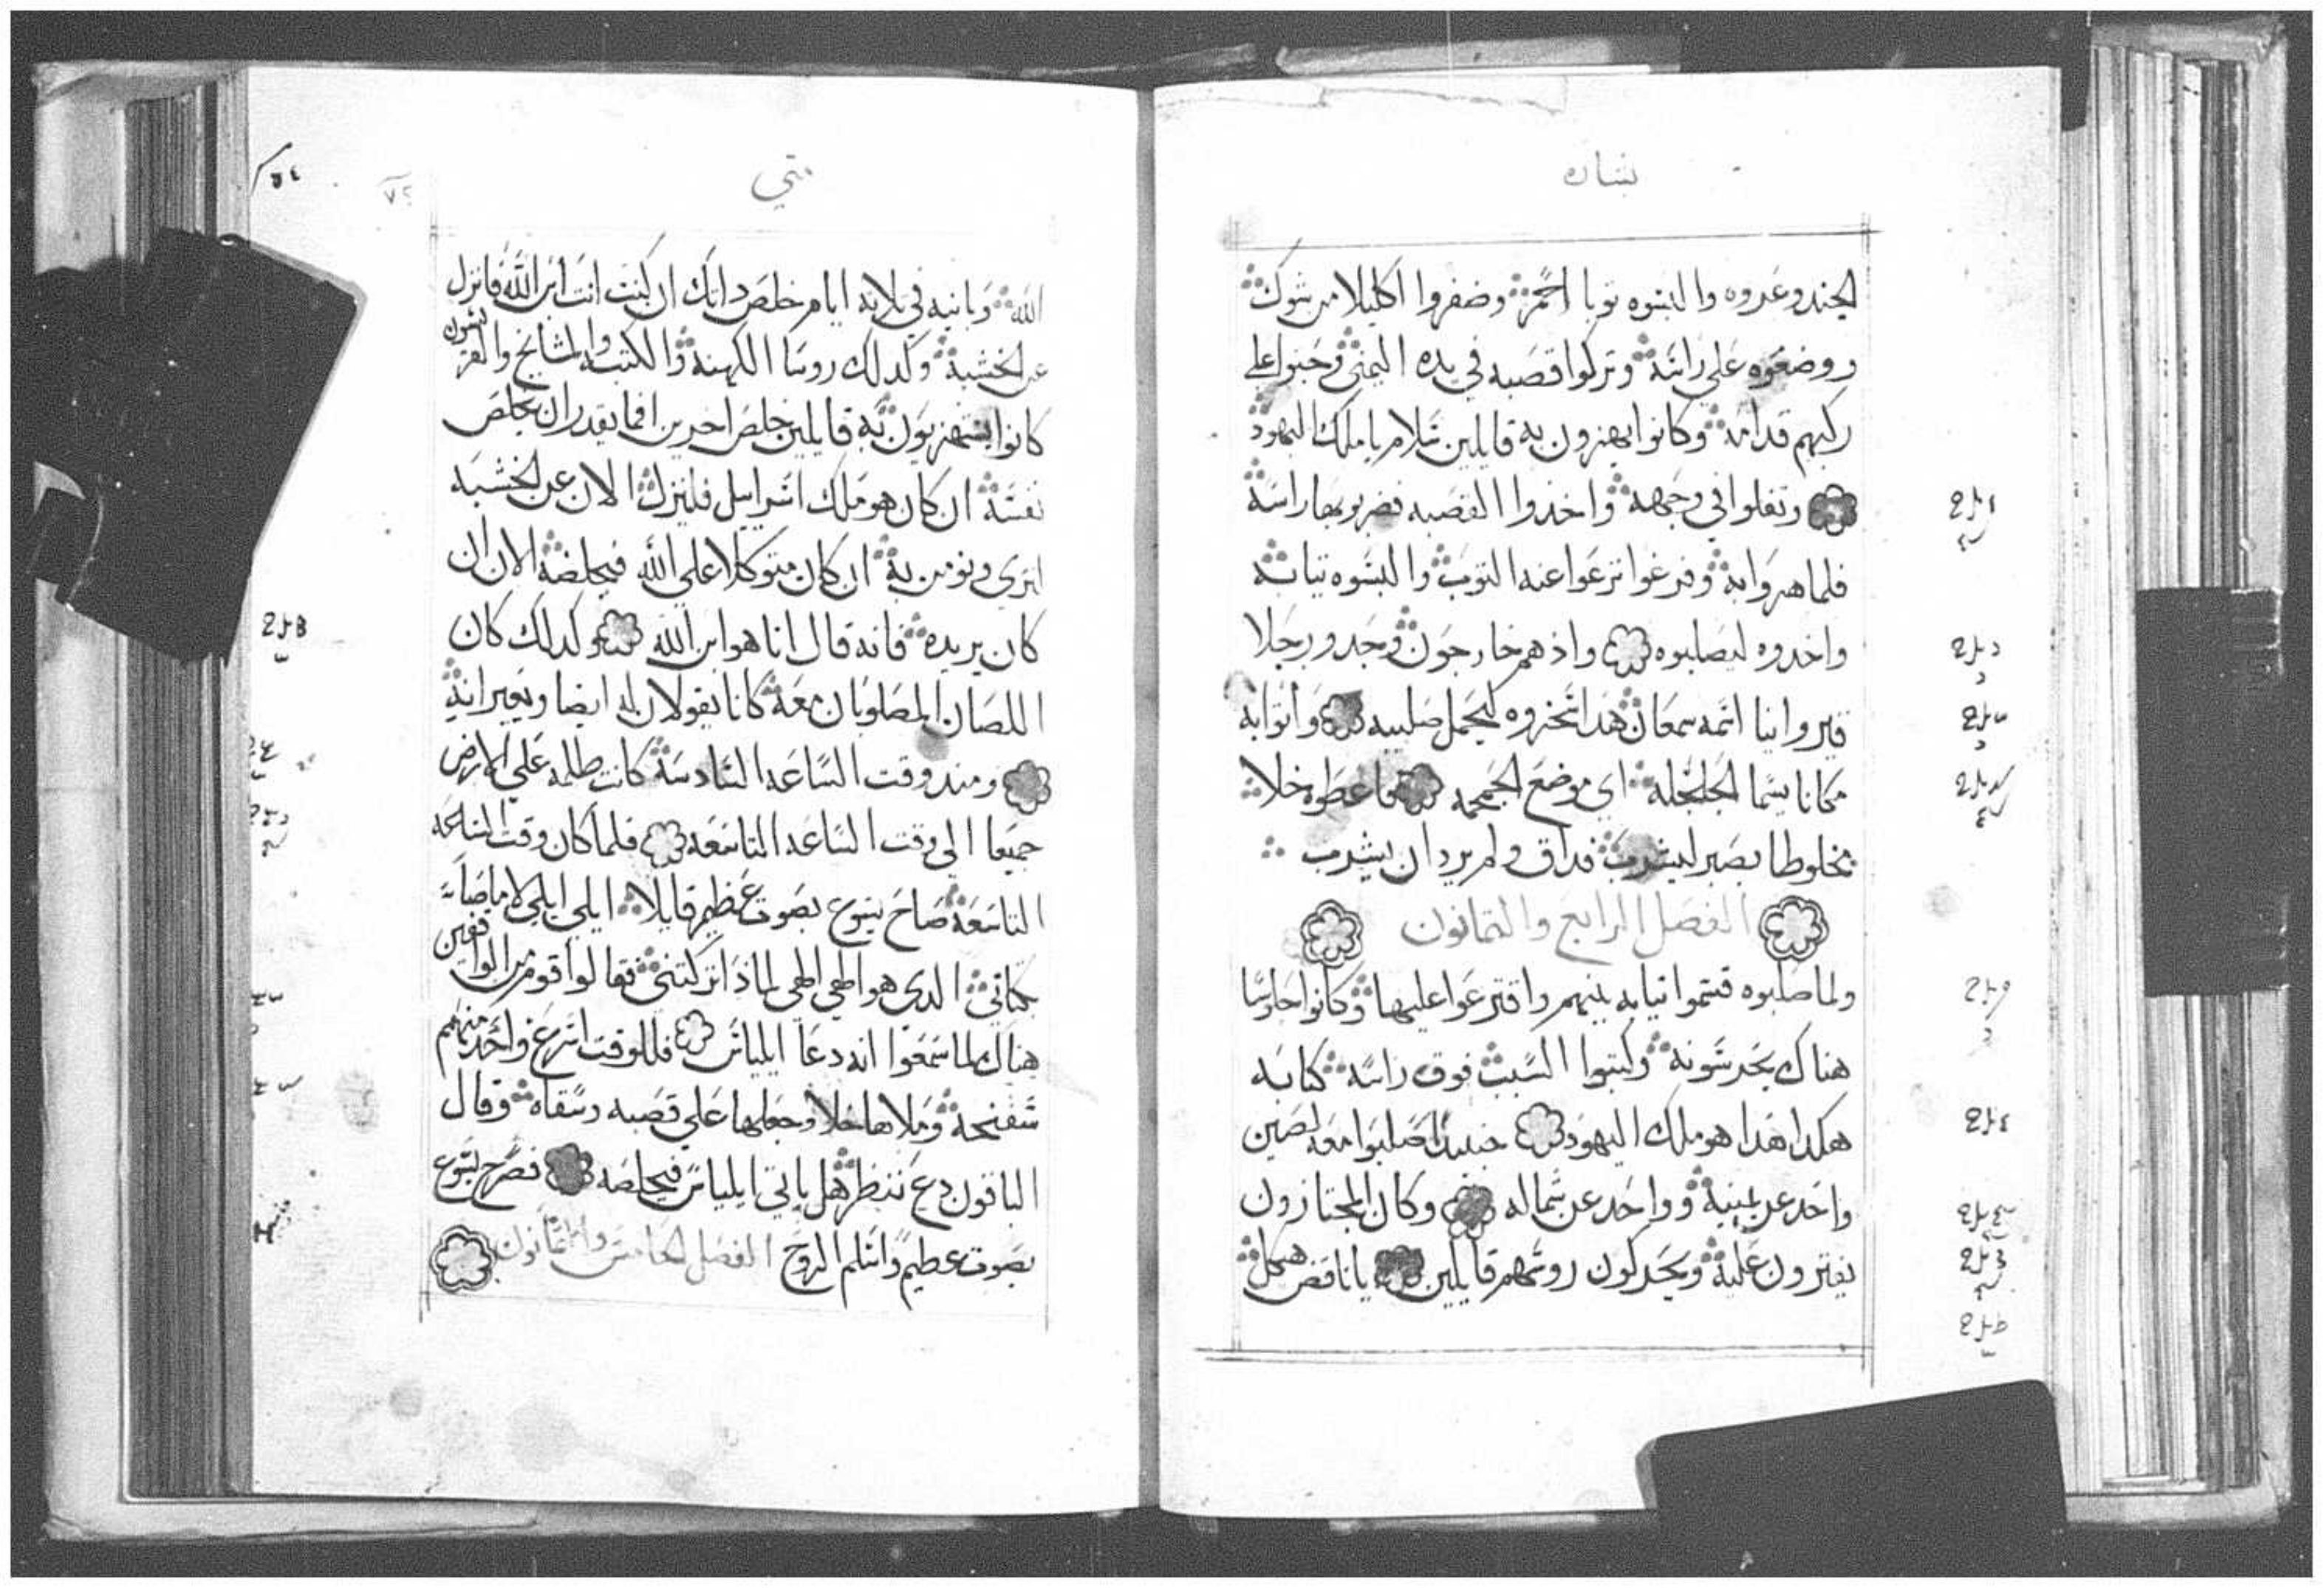 بشاره
الجند وعروه والبسوه توبا احمر وضفروا اكليلا من شوك
ووضعوه على راسه وتركوا قصبه في يده اليمنى وحبوا على
ركبهم قدامه وكانوا يهزون به قايلين سلام يا ملك اليهود
وتفلوا في وجهه واخذوا القصبه فضربو بها راسه
فلما هزوا به وفرغوا نزعوا عنه التوب والبسوه تيابه
واخدوه ليصلبوه واذ هم خارجون وجدو رجلا
قيروانيا اسمه سمعان هدا سخروه ليحمل صليبه وأتوا به
مكانا يسما الجلجله اي موضع الجمجمه فاعطوه خلا
مخلوطا بصبر ليشرب فداق ولم يرد ان يشرب
الفصل الرابع والتمانون
ولما صلبوه قسموا تيابه بينهم واقترعوا عليها وكانوا جلوسا
هناك يحرسونه وكتبوا السبب فوق راسه كتابه
هكدا هدا هو ملك اليهود حينيد صلبوا معه لصين
واحد عن يمينه وواحد عن شماله وكان المجتازون
يفترون عليه ويحركون روسهم قايلين يا ناقض هيكل
متي
٧٢
الله وبانيه في تلاته ايام خلص داتك ان كنت انت ابن الله فانزل
عن الخشبه وكدلك روسا الكهنه والكتبه والمشايخ والفريسيون
كانوا يستهزيون به قايلين خلص اخرين افما يقدر ان يخلص
نفسه ان كان هو ملك اسراييل فلينزل الان عن الخشبه
لنرى ونومن به ان كان متوكلا على الله فيخلصه الان ان
كان يريده فانه قال انا هو ابن الله وكدلك كان
اللصان المصلوبان معه كانا يقولان له ايضا ويعيرانه
ومند وقت الساعه السادسه كانت ظلمه على الارض
جميعا الى وقت الساعه التاسعه فلما كان وقت الساعه
التاسعه صاح يسوع بصوت عظيم قايلا ايلي ايلي لاما صا
بكتاني الدي هو الهي الهي لماذا تركتني فقالوا قوم من الواقفين
هناك لما سمعوا انه دعا ايلياس فللوقت اسرع واحد منهم
سفنجه وملاها خلا وجعلها على قصبه وسقاه وقال
الباقون دع ننظر هل ياتي ايلياس فيخلصه فصرح يسوع
بصوت عظيم واسلم الروح الفصل الخامس والتمانون